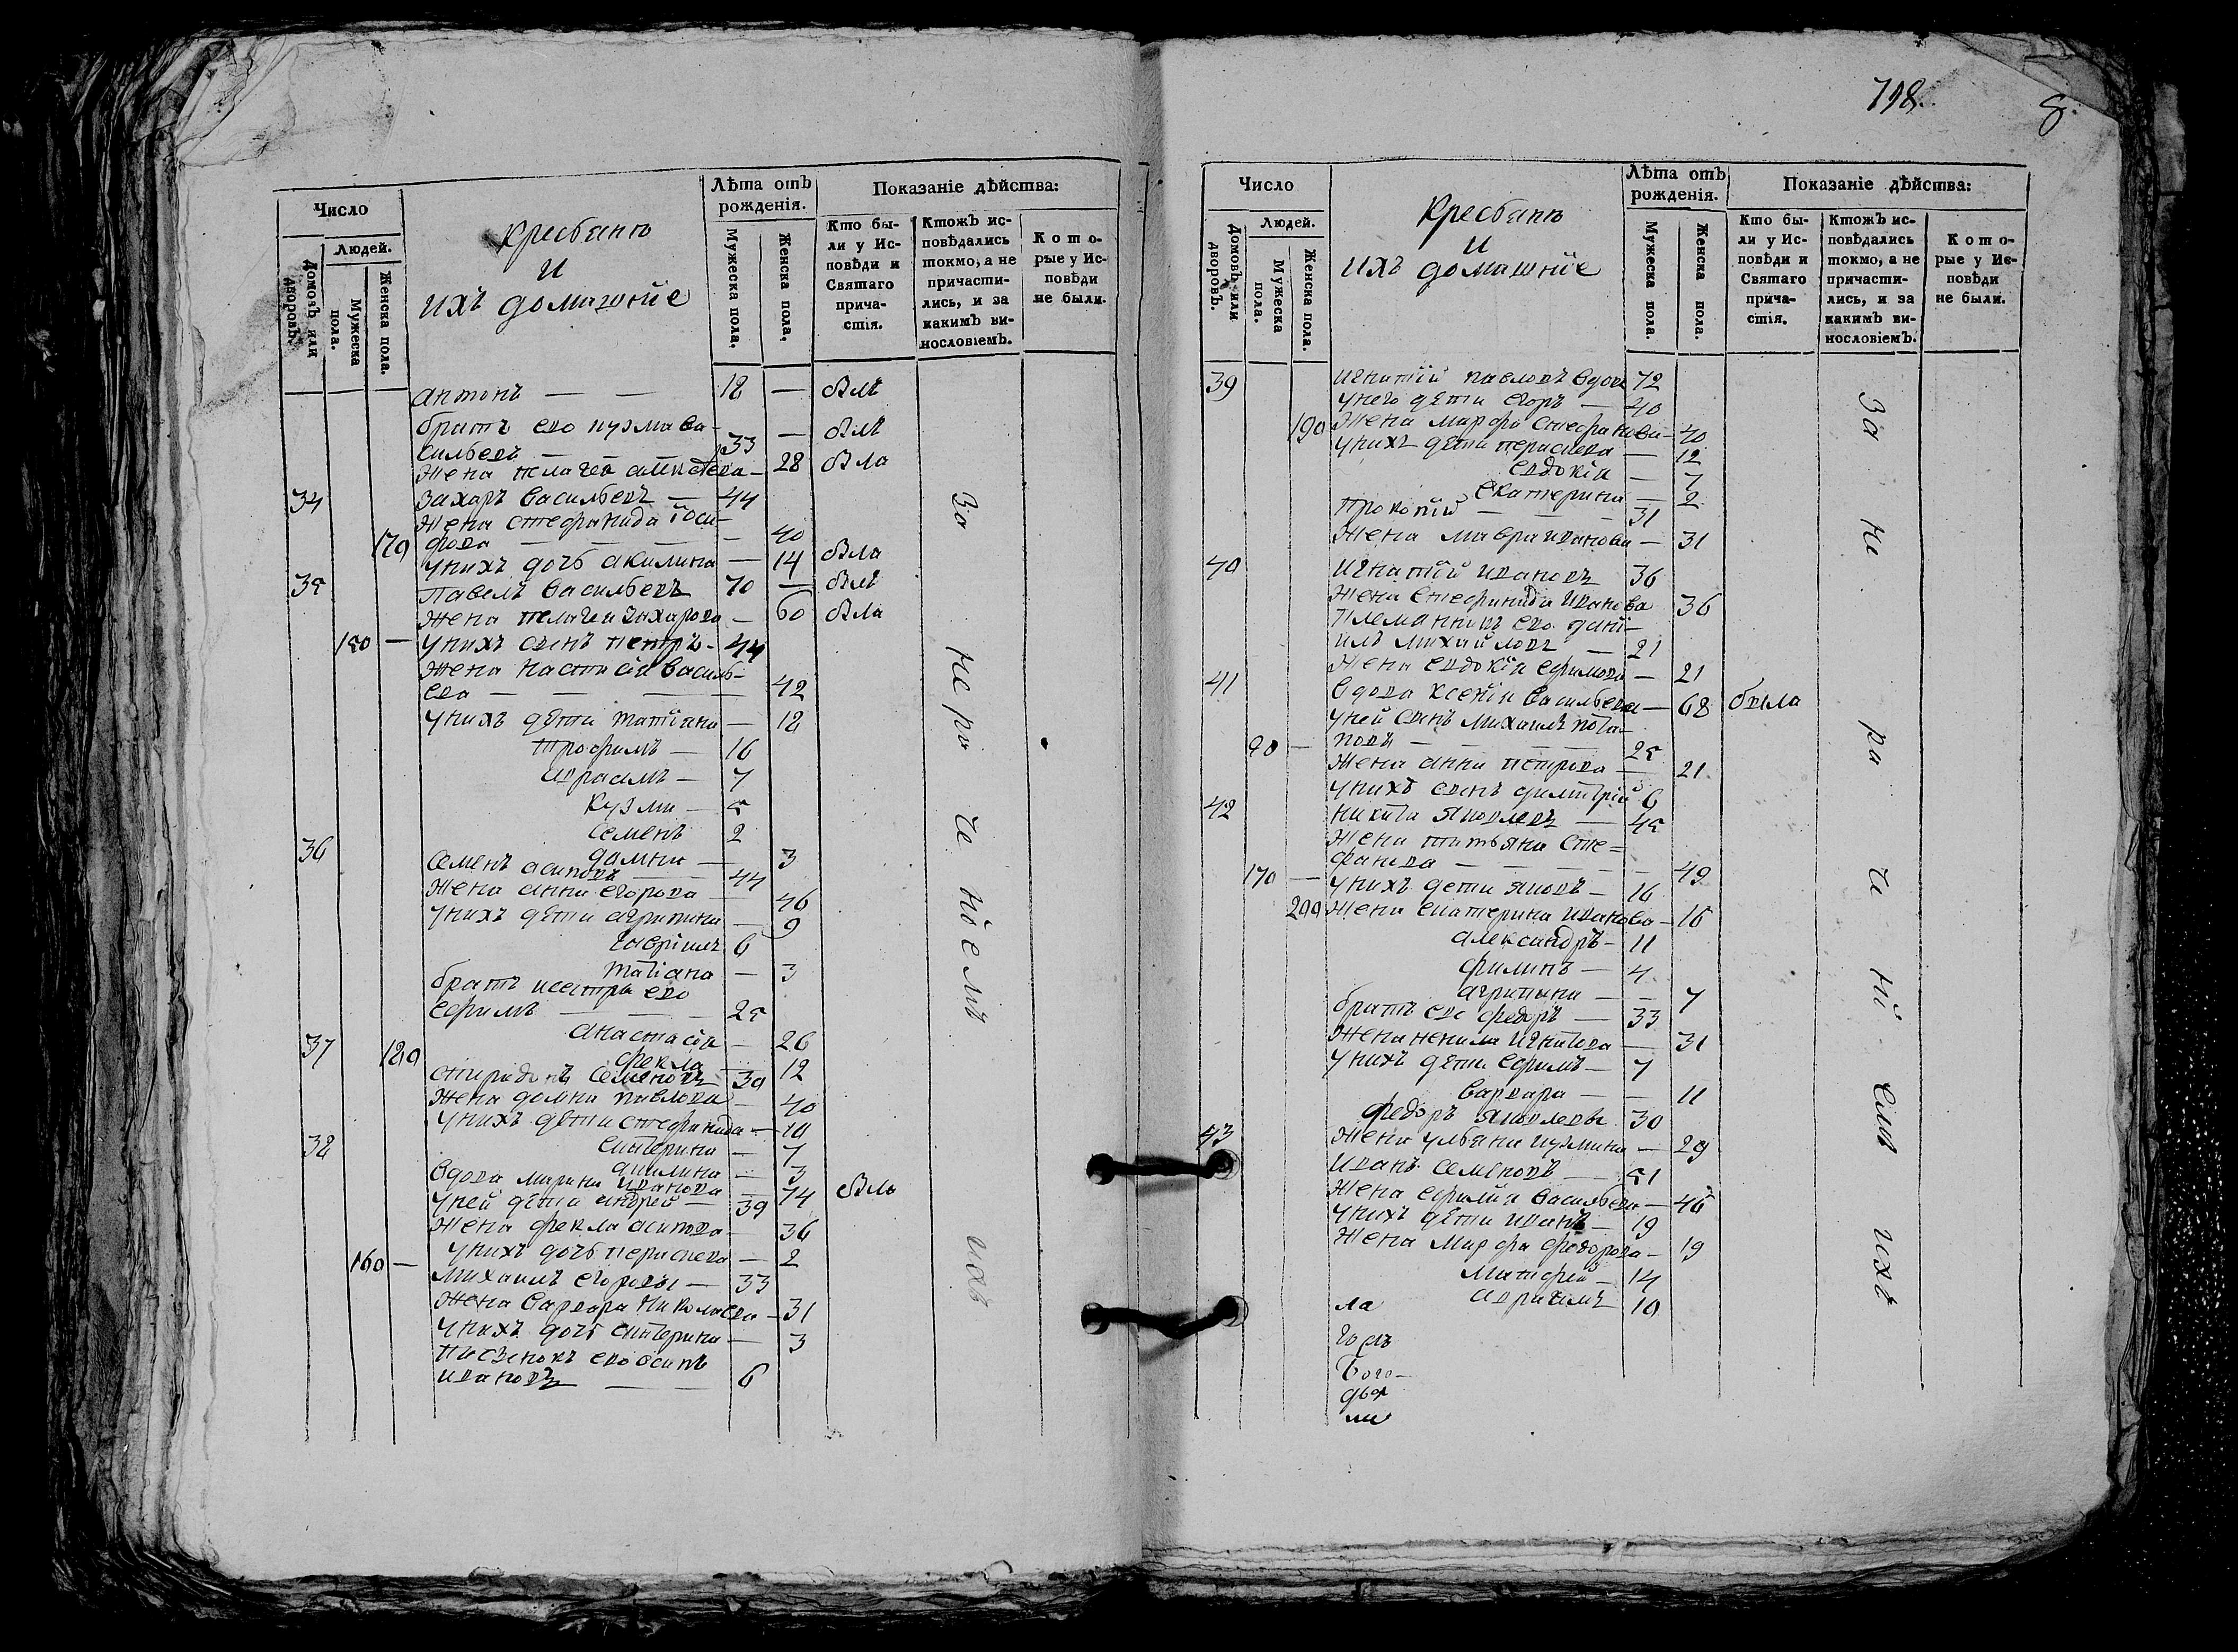 Число
Людей.
Домовъ или дворовъ.
Мужеска пола.
Женска пола.
Крестьянъ
и
ихъ домашніе
Лѣта отъ рожденія.
Мужеска пола.
Женска пола.
Показаніе дѣйства:
Кто бы-
ли у Ис-
повѣди и
Святаго
прича-
стія.
Ктожъ ис-
повѣдались
токмо, а не
причасти-
лись, и за
какимъ ви-
нословіемъ.
Кото-
рые у Ис-
повѣди
не были.
Антонъ — — 18 — былъ
братъ ево кузма ва-
сильевъ — — 33 — былъ
жена пелагея алексѣева — 28 была
34 Захаръ васильевъ — 44
жена стефанида іоси-
170 фова — — — 40
у нихъ дочь акилина — 14 была
35 Павелъ васильевъ 70 — былъ
жена пелагеи захарова — 60 была
150 — у нихъ сынъ петръ — 44
жена настасія василь-
ева — — — 42
у нихъ дѣти татіяна — 18
трофимъ — 16
авраамъ — 7
кузма — 5
семенъ 2
36 домна — 3
семенъ осиповъ — 44
жена анна егорова — 46
у нихъ дѣти агрипина — 9
гаврилъ 6
татіана — 3
братъ и сестры ево
ефимъ — — — 25
анастасія — 26
37 180 фекла — 12
спиридонъ семеновъ 39
жена домна павлова — 40
у нихъ дѣти стефанида — 10
38 катерина — 7
акилина — 3
вдова марина иванова — 74 была
у ней дѣти андрей — 39
жена фекла осипова — 36
160 — у нихъ дочь пераскева — 2
михаилъ егоровы — 33
жена варвара николаева — 31
у нихъ дочь катерина — 3
пасынокъ ево осипъ
ивановъ — — 6
За нераченіемъ ихъ
798.
8.
Число
Людей.
Домовъ или дворовъ.
Мужеска пола.
Женска пола.
Крестьянъ
и
ихъ домашніе
Лѣта отъ рожденія.
Мужеска пола.
Женска пола.
Показаніе дѣйства:
Кто бы-
ли у Ис-
повѣди и
Святаго
прича-
стія.
Ктожъ ис-
повѣдались
токмо, а не
причасти-
лись, и за
какимъ ви-
нословіемъ.
Кото-
рые у Ис-
повѣди
не были.
39 Игнатій павловъ вдовъ 72
у него дѣти егоръ — 40
190 жена марфа стефанова — 40
у нихъ дѣти пераскева — 12
евдокія — 7
екатерина — 2
прокопій — — — 31
жена мавра иванова — 31
40 Игнатій ивановъ 36
жена стефанида иванова 36
племянникъ ево дані-
илъ михайловъ — 21
жена евдокія ефимова — 21
41 вдова ксенія васильева — 68 была
у ней сынъ михаилъ пота-
90 — повъ — — — 25
жена анна петрова — 21
у нихъ сынъ димитрій 6
42 никита яковлевъ — 45
жена татьяна сте-
фанова — — — 49
170 — у нихъ дети яковъ — 16
200 жена екатерина иванова — 16
александръ — 11
филипъ — 4
агрипина — — 7
братъ ево федоръ — 33
жена ненила игнатова — 31
у нихъ дѣти ефимъ — 7
варвара — — 11
федоръ яковлевы 30
43 жена ульяна кузмина — 29
иванъ семеновъ — 51
жена ефимія васильева — 46
у нихъ дѣти иванъ — 19
жена марфа федорова — 19
матфей — 14
авраамъ 10
ла
Бого-
двор
ли
За нераченіемъ ихъ